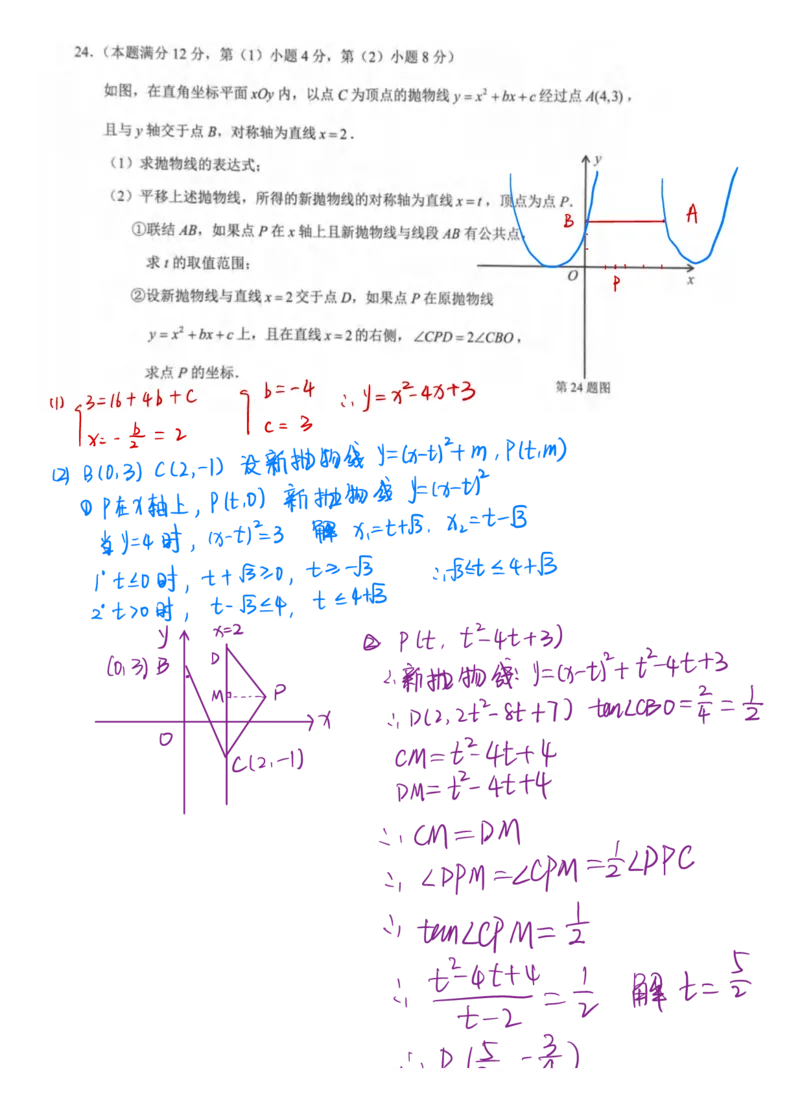 24.（本题满分 12 分，第（1）小题 4 分，第（2）小题 8 分）
如图，在直角坐标平面 xOy 内，以点 C 为顶点的抛物线 y = x² + bx + c 经过点 A(4,3)，
且与 y 轴交于点 B，对称轴为直线 x = 2．
（1）求抛物线的表达式；
（2）平移上述抛物线，所得的新抛物线的对称轴为直线 x = t，顶点为点 P．
①联结 AB，如果点 P 在 x 轴上且新抛物线与线段 AB 有公共点，
求 t 的取值范围；
②设新抛物线与直线 x = 2 交于点 D，如果点 P 在原抛物线
y = x² + bx + c 上，且在直线 x = 2 的右侧，∠CPD = 2∠CBO，
求点 P 的坐标．
y
B
A
O
P
x
第 24 题图
(1) { 3=16+4b+c
x=-b/2=2
{ b=-4
c=3
∴ y=x²-4x+3
(2) B(0,3) C(2,-1) 设新抛物线 y=(x-t)²+m, P(t,m)
① P在x轴上, P(t,0) 新抛物线 y=(x-t)²
当y=4时, (x-t)²=3 解 x₁=t+√3, x₂=t-√3
1° t≤0时, t+√3≥0, t≥-√3
∴-√3≤t≤4+√3
2° t>0时, t-√3≤4, t≤4+√3
y
x=2
(0,3) B
D
M
P
O
x
C(2,-1)
② P(t, t²-4t+3)
∴新抛物线: y=(x-t)²+t²-4t+3
∴D(2, 2t²-8t+7) tan∠CBO=2/4=1/2
CM=t²-4t+4
DM=t²-4t+4
∴ CM=DM
∴ ∠DPM=∠CPM=1/2∠DPC
∴ tan∠CPM=1/2
∴ (t²-4t+4)/(t-2)=1/2 解 t=5/2